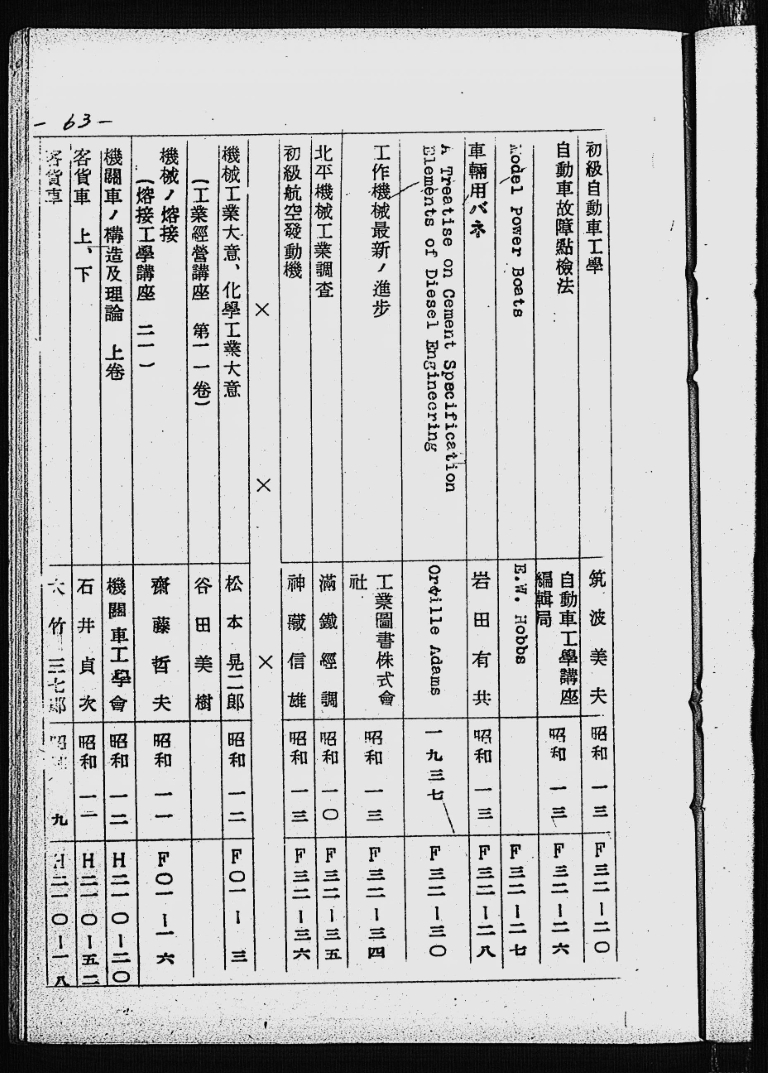 - 63 -
初級自動車工學 筑波美夫 昭和一三 F三二−二〇
自動車故障點檢法 自動車工學講座編輯局 昭和一三 F三二−二六
Model Power Boats E.W. Hobbs F三二−二七
車輛用バネ 岩田有共 昭和一三 F三二−二八
A Treatise on Cement Specification
Elements of Diesel Engineering Orville Adams 一九三七 F三二−三〇
工作機械最新ノ進步 工業圖書株式會社 昭和一三 F三二−三四
北平機械工業調查 滿鐵經調 昭和一〇 F三二−三五
初級航空發動機 神藏信雄 昭和一三 F三二−三六
× × ×
機械工業大意、化學工業大意 松本晃二郎 昭和一二 F〇一−三
(工業經營講座 第一一卷) 谷田美樹
機械ノ熔接 齋藤哲夫 昭和一一 F〇一−一六
(熔接工學講座 二一)
機關車ノ構造及理論 上卷 機關車工學會 昭和一二 H二一〇−二〇
客貨車 上、下 石井貞次 昭和一二 H二一〇−五二
客貨車 大竹三七郎 昭 九 H二一〇−一八